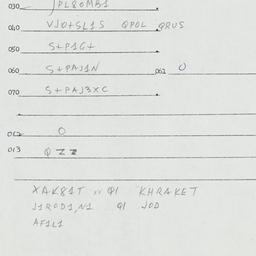 030 JPL80MB1
040 VJD+SL1S QPOL QRUS
050 S+P1G+
060 S+PAJ1N 061 O
070 S+PAJ3XC
012 O
013 Q Z Z
XAK81T Q1 KHRAKET
J1ROD1,N1 Q1 JOD
AF1L1